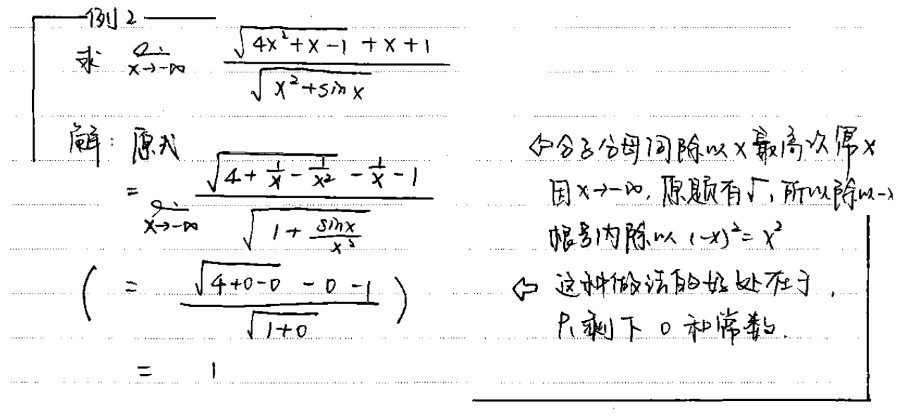 例2
求 lim x→-∞ (√(4x²+x-1) + x + 1) / √(x²+sinx)
解: 原式
= lim x→-∞ (√(4+1/x-1/x²) - 1/x - 1) / √(1+sinx/x²)
( = (√(4+0-0) - 0 - 1) / √(1+0) )
= 1
⇦分子分母同除以x最高次幂x
因x→-∞, 原题有√, 所以除以-x
根号内除以 (-x)²=x²
⇦ 这种做法的好处在于,
只剩下 0 和常数.